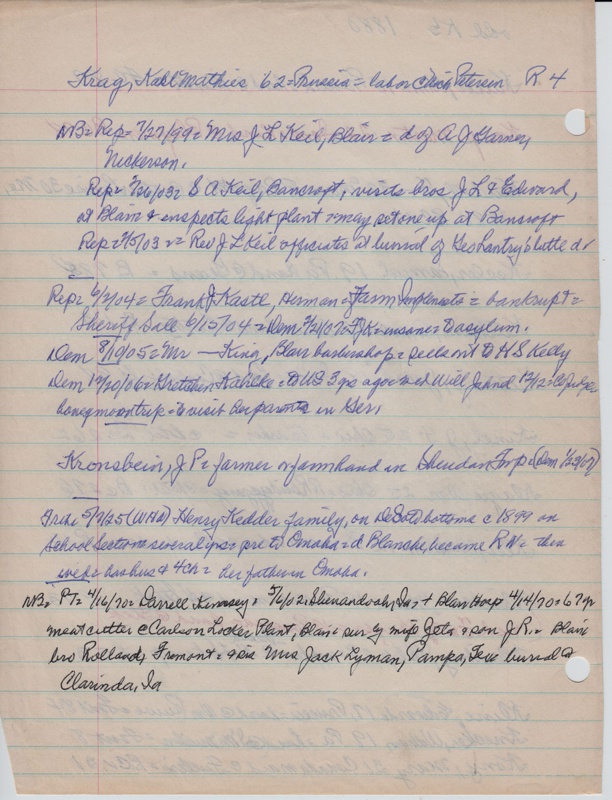 Krag, Karl Mathies 62 = Prussia = labor c Nick Petersen R. 4
NB = Rep = 7/27/99 = Mrs J L Keil, Blair = d of A J Garner,
Nickerson.
Rep = /26/03 = S A Keil, Bancroft, visits bros J L & Edward,
at Blair & inspects light plant & may set one up at Bancroft
Rep = /5/03 = Rev J L Keil officiates at burial of Geo Lantry's little dr
Rep = 6/2/04 = Frank J Kastl, Herman = Farm Implements = bankrupt =
Sheriff Sale 6/15/04 = Dem 9/2/07 = FJK = insane = to asylum.
Dem 8/10/05 = Mr — King, Blair barbershop = sells out to H S Kelly
Dem 12/20/06 = Gretchen Kahlke = to US 3 yrs ago = wed Will Jahnel 12/12 = Co Judge =
honeymoon trip = to visit her parents in Ger.
Kronsbein, J P = farmer or farmhand in Sheridan Twp = (Dem 1/23/02)
Trib = 5/7/25 (WHW) Henry Kedder family, on DeSoto bottoms c 1899 on
School Section = several yrs = pre to Omaha = d Blanche, became R N = then
wed = has hus & 4 ch = her father in Omaha.
NB = PT = 4/16/70 = Darrell Kinnsey = 5/6/02, Shenandoah, Ia, + Blair Hosp 4/14/70 = 67 yr
meatcutter c Carlson Locker Plant, Blair = sur by wife Zeta & son J.R. = Blair
bro Rolland, Fremont = & sis Mrs Jack Lyman, Pampa, Tex = burial @
Clarinda, Ia